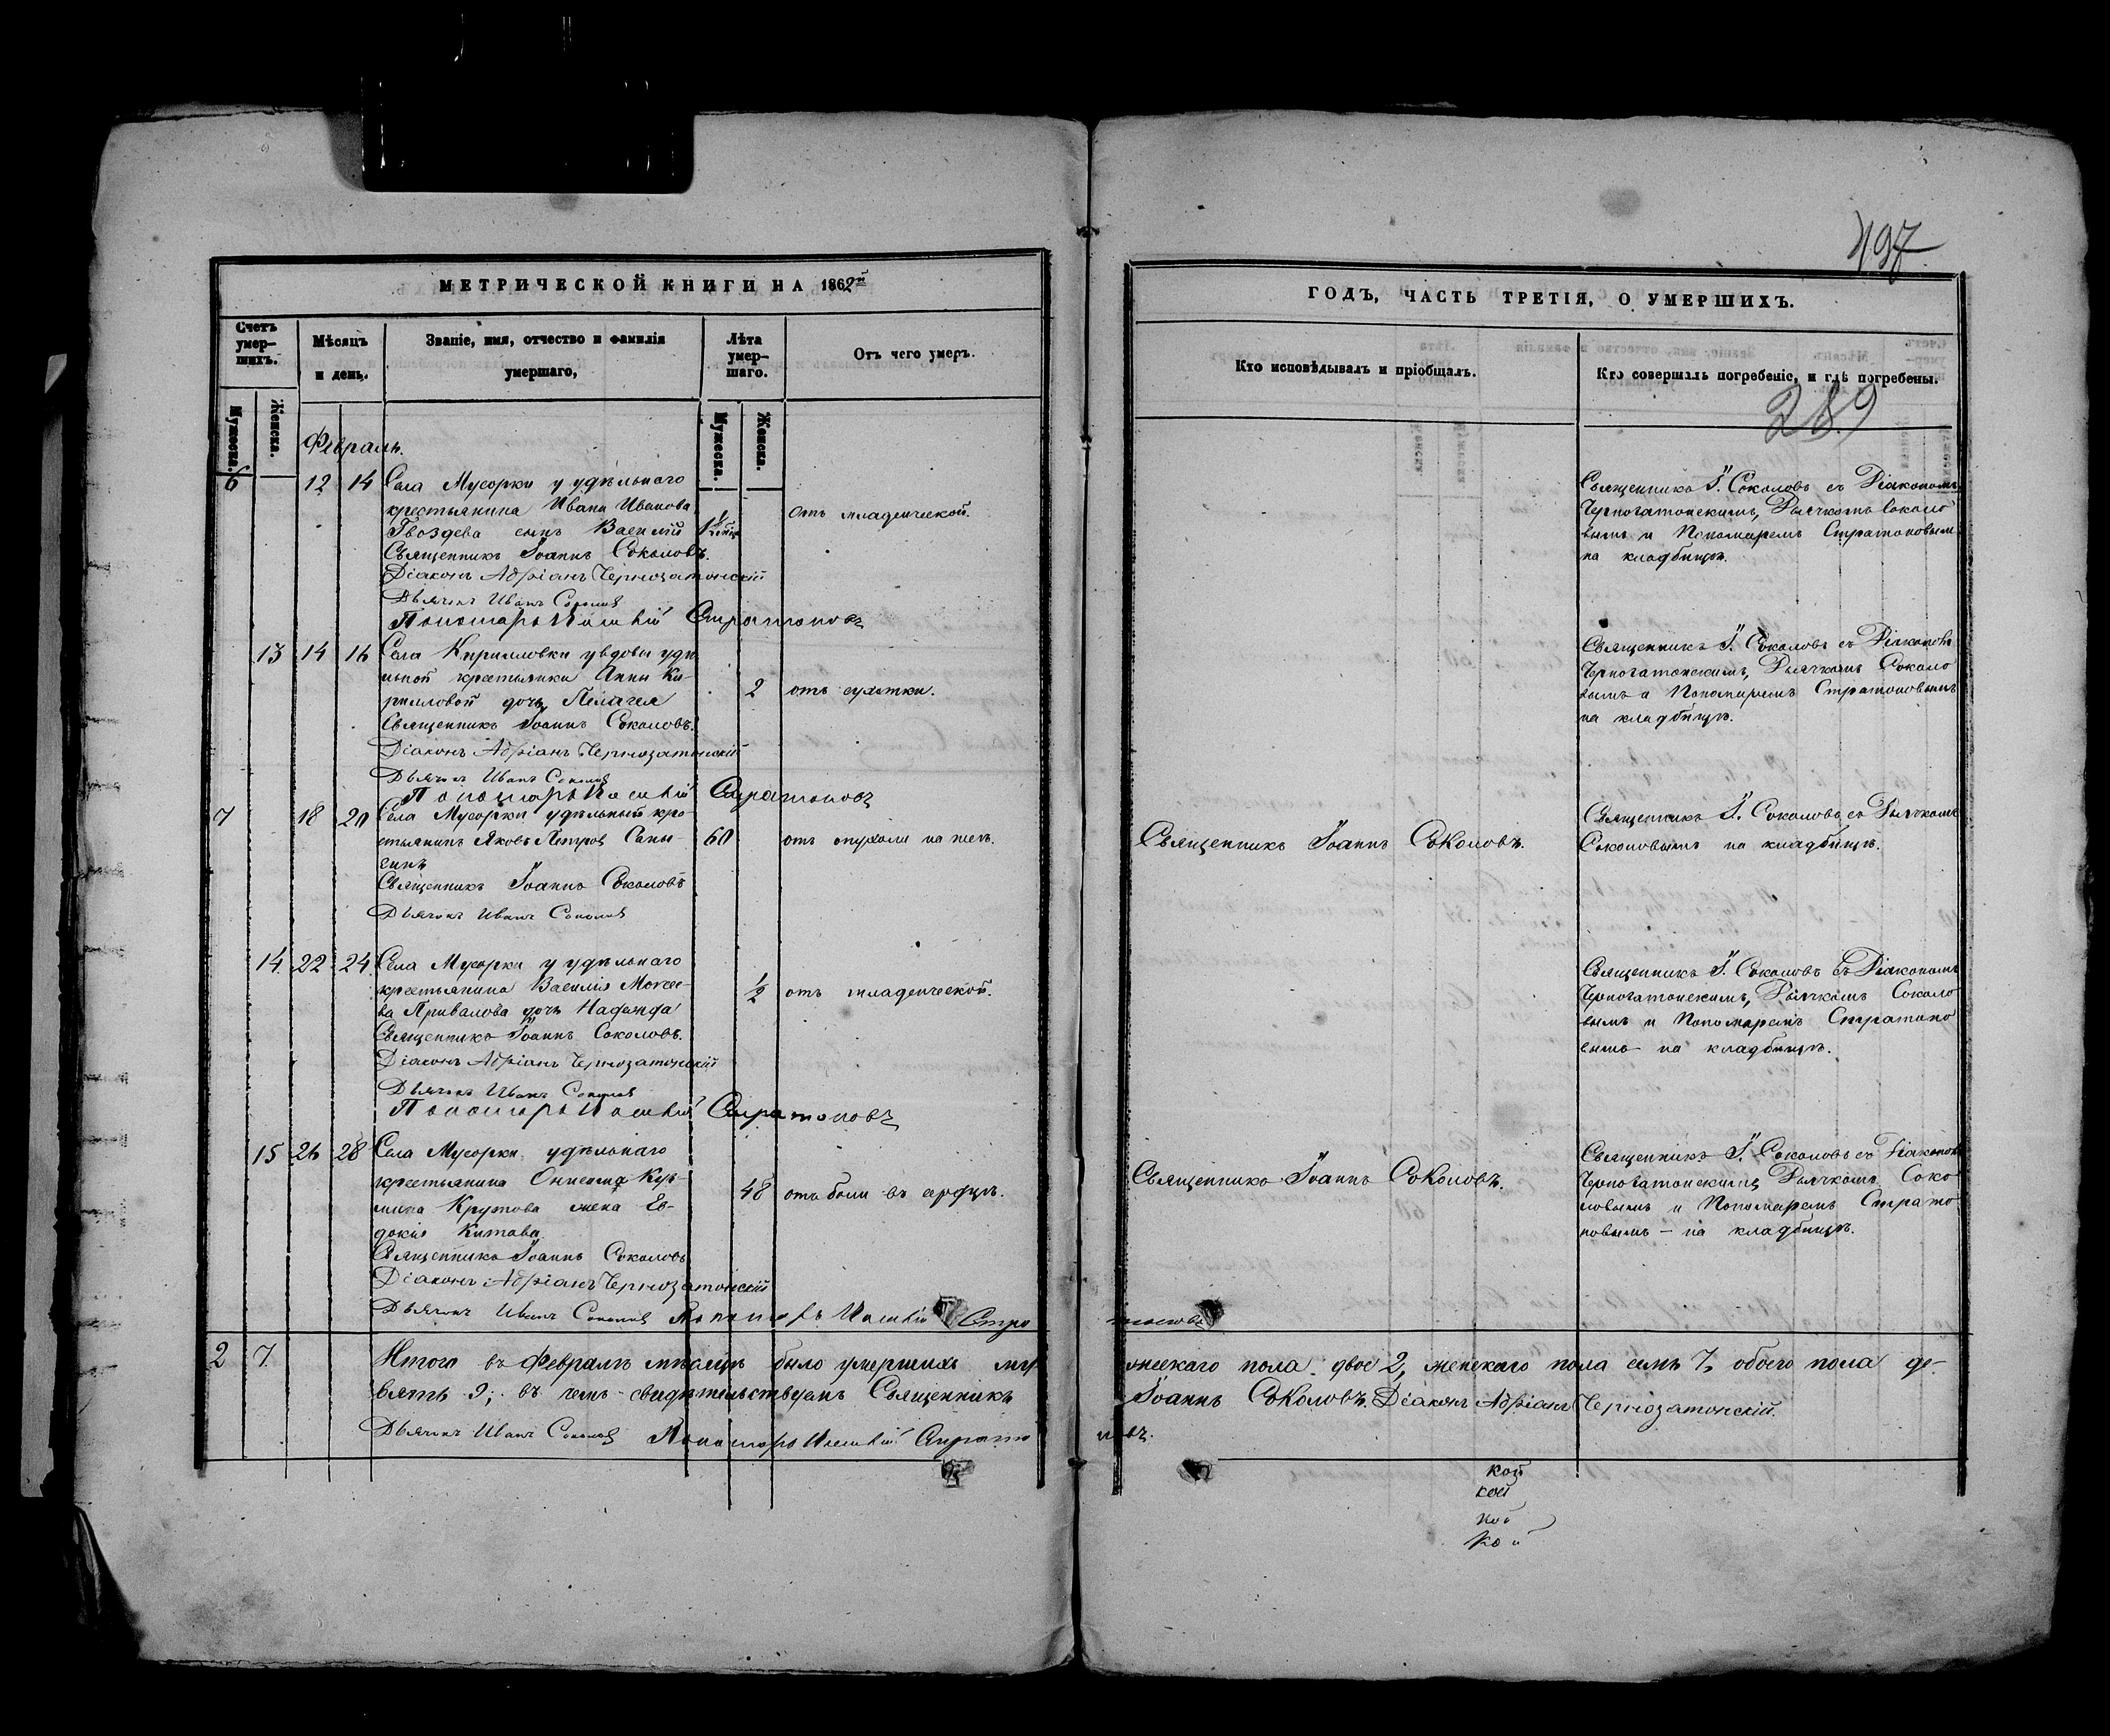 497
МЕТРИЧЕСКОЙ КНИГИ НА 1862й
ГОДЪ, ЧАСТЬ ТРЕТІЯ, О УМЕРШИХЪ.
Счетъ умер-шихъ.
Мѣсяцъ и день.
Званіе, имя, отчество и фамилія умершаго,
Лѣта умер-шаго.
Отъ чего умеръ.
Кто исповѣдывалъ и пріобщалъ.
Кто совершалъ погребеніе, и гдѣ погребены.
289
Мужеска.
Женска.
Мужеска.
Женска.
Февраль.
6 12 14 Села Мусорки у удѣльнаго
крестьянина Ивана Иванова
Гвоздева сынъ Василій
отъ младенческой.
Священникъ Іоаннъ Соколовъ.
Діаконъ Адріанъ Чернозатонскій
Дьячокъ Иванъ Соколовъ
Пономарь Стратоновъ
Священникъ І. Соколовъ съ Діакономъ
Чернозатонскимъ, Дьячкомъ Соколо
вымъ и Пономаремъ Стратоновымъ
на кладбищѣ.
13 14 16 Села Кирилловки у вдовы удѣ
льной крестьянки Анны Ки-
рилловой дочь Пелагея
2 отъ сухотки.
Священникъ Іоаннъ Соколовъ.
Діаконъ Адріанъ Чернозатонскій
Дьячокъ Иванъ Соколовъ
Пономарь Стратоновъ
Священникъ І. Соколовъ съ Діакономъ
Чернозатонскимъ, Дьячкомъ Соколо
вымъ и Пономаремъ Стратоновымъ
на кладбищѣ.
7 18 20 Села Мусорки удѣльный кре-
стьянинъ Яковъ Петровъ
60 отъ опухоли на шеѣ.
Священникъ Іоаннъ Соколовъ
Дьячокъ Иванъ Соколовъ
Священникъ Іоаннъ Соколовъ.
Священникъ І. Соколовъ съ Дьячкомъ
Соколовымъ на кладбищѣ.
14 22 24 Села Мусорки у удѣльнаго
крестьянина Василія Моисее-
ва Привалова дочь Надежда
1/2 отъ младенческой.
Священникъ Іоаннъ Соколовъ.
Діаконъ Адріанъ Чернозатонскій
Дьячокъ Иванъ Соколовъ
Пономарь Стратоновъ
Священникъ І. Соколовъ съ Діакономъ
Чернозатонскимъ, Дьячкомъ Соколо
вымъ и Пономаремъ Стратоно
вымъ на кладбищѣ.
15 26 28 Села Мусорки удѣльнаго
крестьянина Онисима Кузь-
мина Крутова жена Ев-
докія Китова
48 отъ боли въ сердцѣ.
Священникъ Іоаннъ Соколовъ
Діаконъ Адріанъ Чернозатонскій
Дьячокъ Иванъ Соколовъ Пономарь Стратоновъ
Священникъ Іоаннъ Соколовъ.
Священникъ І. Соколовъ съ Діакономъ
Чернозатонскимъ Дьячкомъ Соко
ловымъ и Пономаремъ Страто
новымъ – на кладбищѣ.
2 7. Итого въ Февралѣ мѣсяцѣ было умершихъ мужескаго пола двое 2, женскаго пола семь 7, обоего пола де-
вять 9; въ чемъ свидѣтельствуемъ Священникъ Іоаннъ Соколовъ. Діаконъ Адріанъ Чернозатонскій.
Дьячокъ Иванъ Соколовъ Пономарь Стратоновъ.
кой
кой
кой
кой